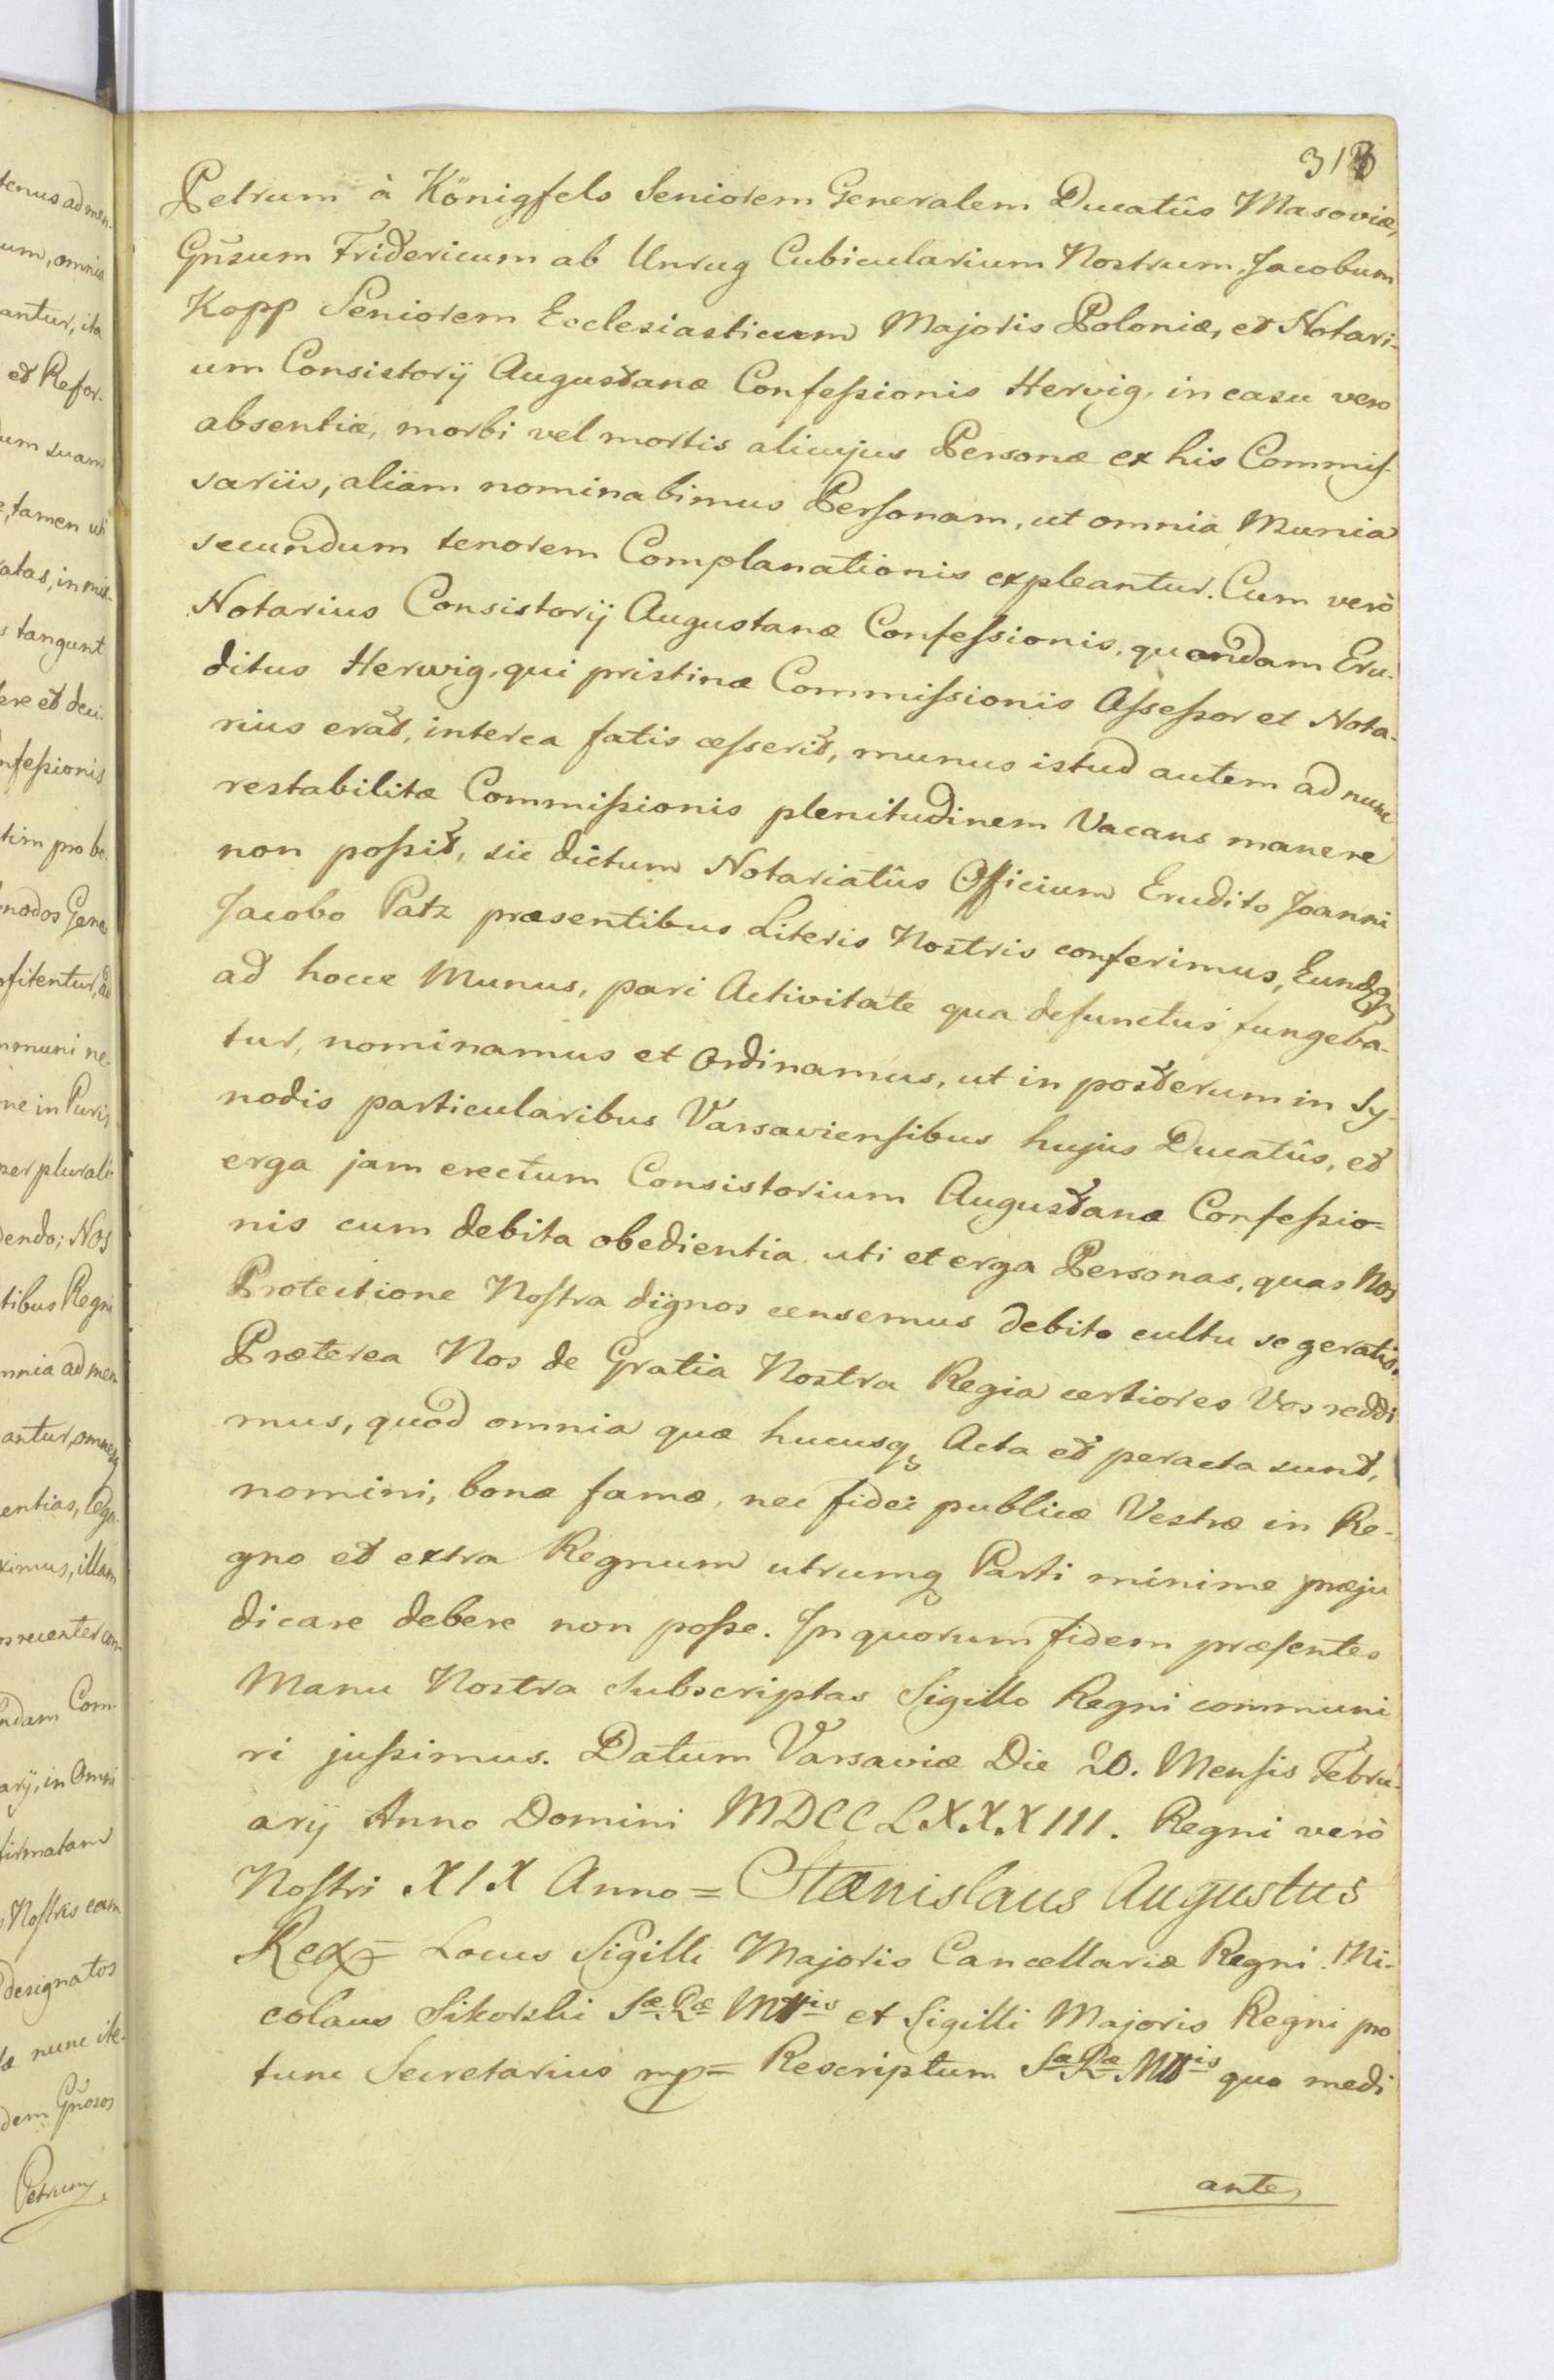 313
Petrum à Königfels Seniorem Generalem Ducatûs Masoviæ,
Gñsum Fridericum ab Unrug Cubicularium Nostrum, Jacobum
Kopp Seniorem Ecclesiasticum Majoris Poloniæ, et Notari-
um Consistorÿ Augustanæ Confessionis Herwig, in casu vero
absentiæ, morbi vel mortis alicujus Personæ ex his Commis-
sariis, aliam nominabimus Personam, ut omnia Munia
secundum tenorem Complanationis expleantur. Cum verò
Notarius Consistorÿ Augustanæ Confessionis, quondam Eru-
ditus Herwig, qui pristinæ Commissionis Assessor et Nota-
rius erat, interea fatis cesserit, munus istud autem ad nunc
restabilitæ Commissionis plenitudinem Vacans manere
non possit, sic dictum Notariatûs Officium Erudito Joanni
Jacobo Patz præsentibus Literis Nostris conferimus, Eundq
ad hocce Munus, pari Activitate qua defunctus fungeba-
tur, nominamus et Ordinamus, ut in posterum in Sy-
nodis particularibus Varsaviensibus hujus Ducatûs, et
erga jam erectum Consistorium Augustanæ Confessio-
nis cum debita obedientia uti et erga Personas, quas Nos
Protectione Nostra dignos censemus debito cultu se geratis.
Præterea Nos de Gratia Nostra Regia certiores Vos reddi
mus, quod omnia quæ hucusq Acta et peracta sunt,
nomini, bonæ famæ, nec fidei publicæ Vestræ in Re-
gno et extra Regnum utrumq Parti minime præju
dicare debere non posse. In quorum fidem præsentes
Manu Nostra Subscriptas Sigillo Regni communi
ri jussimus. Datum Varsaviæ Die 20. Mensis Febru-
arÿ Anno Domini MDCCLXXXIII. Regni verò
Nostri XIX Anno = Stanislaus Augustus
Rex = Locus Sigilli Majoris Cancellariæ Regni. Ni-
colaus Sikorski Sæ Ræ Mttis et Sigilli Majoris Regni pro
tunc Secretarius mp = Rescriptum Sæ Ræ Mttis quo medi
ante